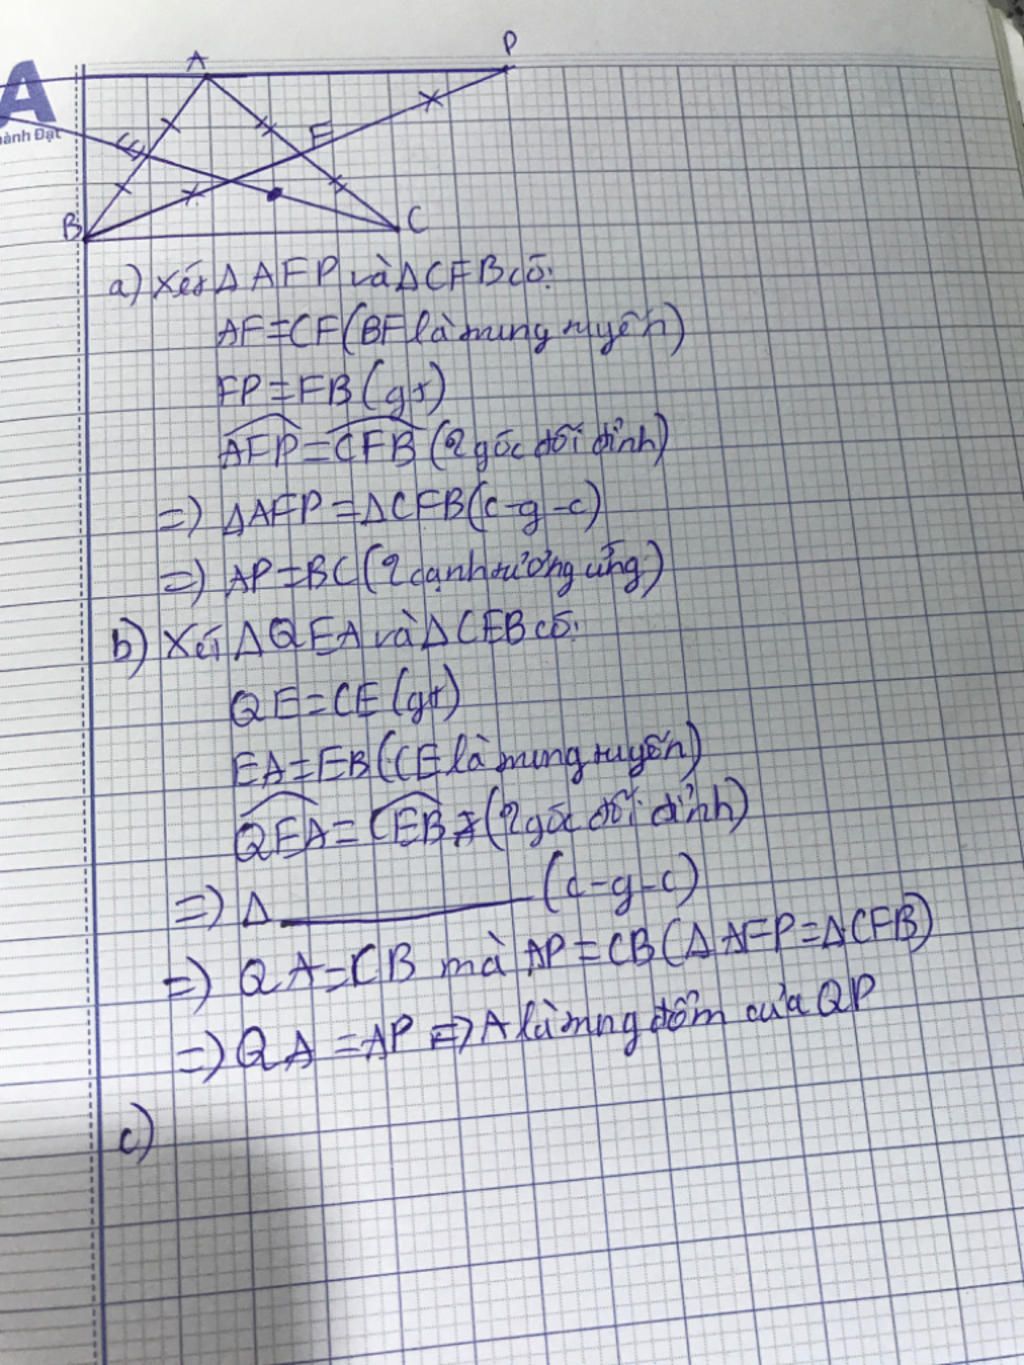 A
ành Đạt
A
P
E
F
B
C
a) Xét Δ AFP và Δ CFB có:
AF = CF (BF là trung tuyến)
FP = FB (gt)
AFP = CFB (2 góc đối đỉnh)
=> ΔAFP = ΔCFB (c-g-c)
=> AP = BC (2 cạnh tương ứng)
b) Xét Δ QEA và Δ CEB có:
QE = CE (gt)
EA = EB (CE là trung tuyến)
QEA = CEB (2 góc đối đỉnh)
=> Δ (c-g-c)
=> QA = CB mà AP = CB (Δ AFP = ΔCFB)
=> QA = AP => A là trung điểm của QP
c)